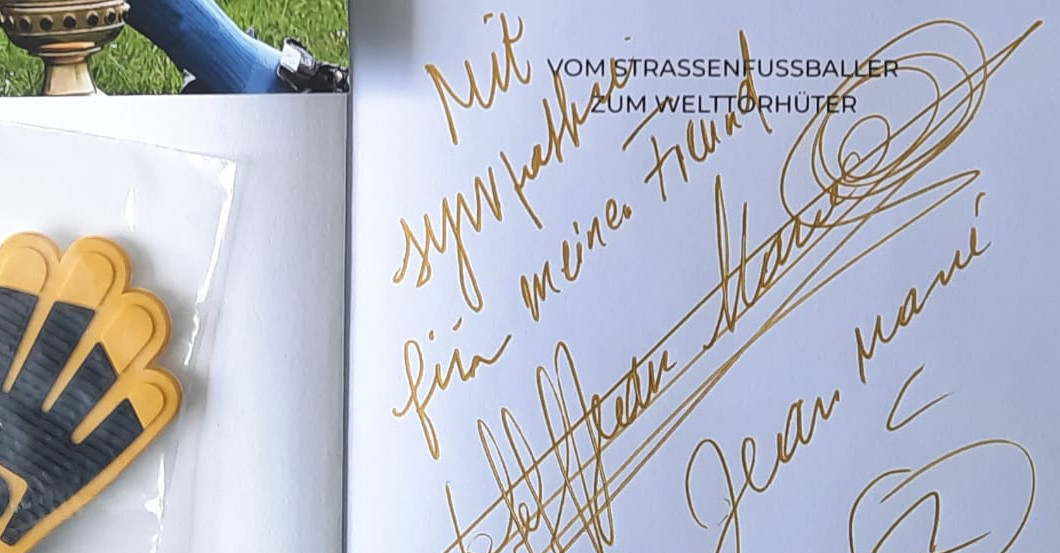 VOM STRASSENFUSSBALLER
ZUM WELTTORHÜTER
Mit
sympathie
für meinen Freund
Jean Marie